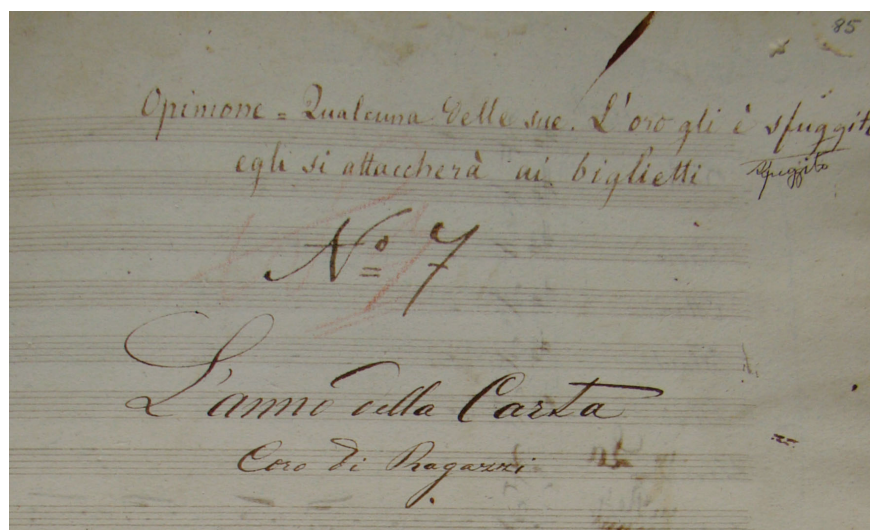 85
Opinione = Qualcuna delle sue. L'oro gli è sfuggito
egli si attaccherà ai biglietti
sfuggito
Nº 7
L'anno della Carta
Coro di Ragazzi